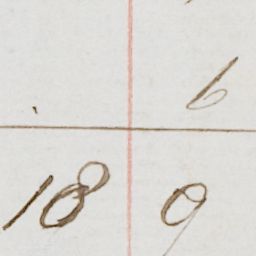 6
18 9